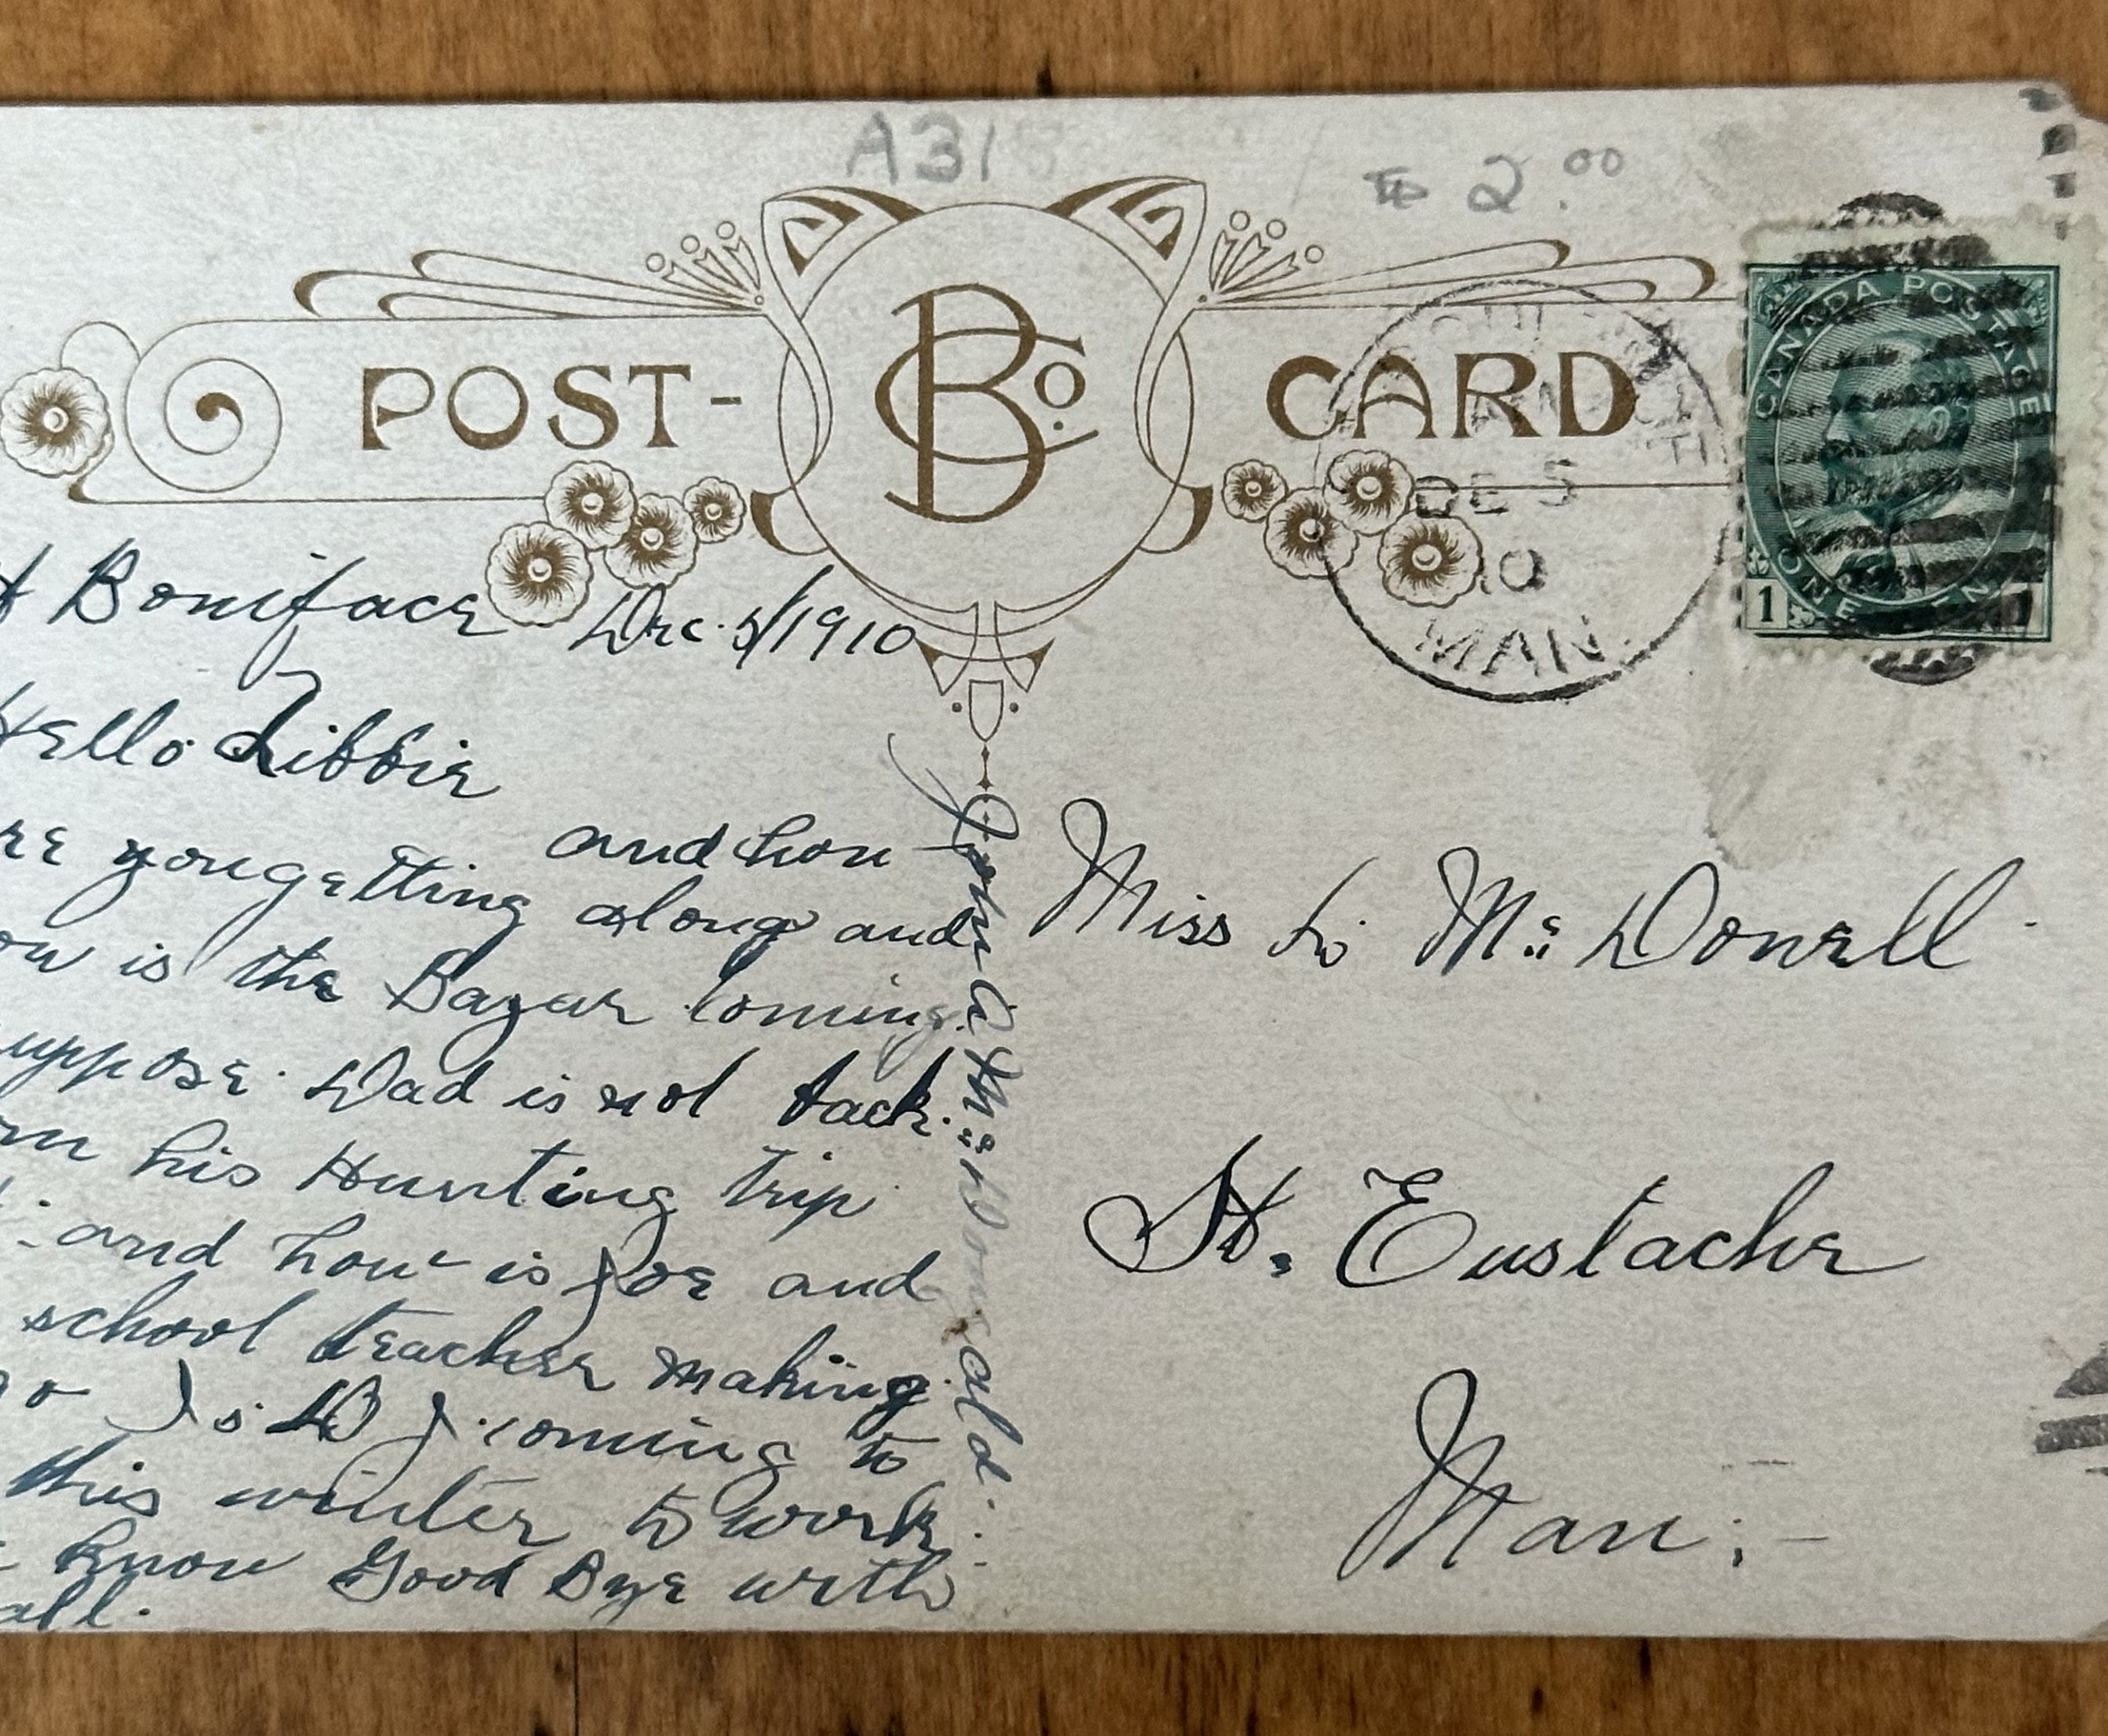 A318
$ 2.00
POST-
B Co.
CARD
DE 5
10
MAN.
CANADA POSTAGE
ONE CENT
1
St Boniface Dec. 5/1910
Hello Libbie
and how
are you getting along and
how is the Bazar coming
suppose. Dad is not back.
from his Hunting trip
and how is Joe and
school teacher making
Is D J coming to
this winter to work
know Good Bye with
all.
John A McDonald.
Miss L. Mc Donell
St. Eustache
Man;-